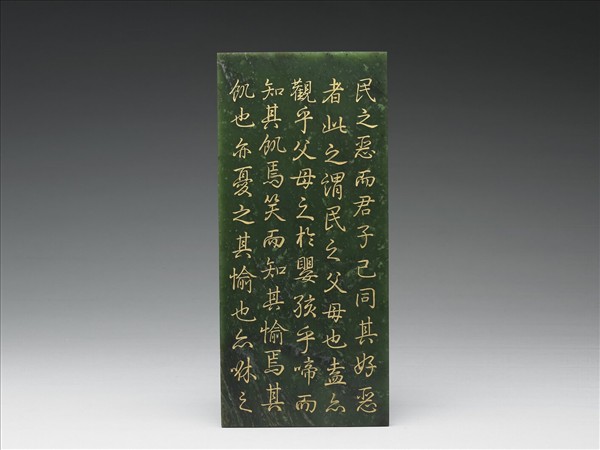 民之惡而君子己同其好惡
者此之謂民之父母也盍亦
觀乎父母之於嬰孩乎啼而
知其飢焉笑而知其愉焉其
飢也亦憂之其愉也亦咻之